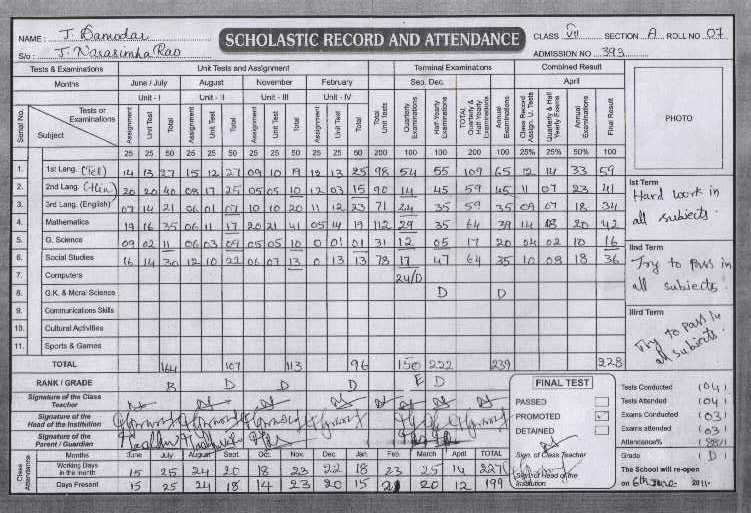 NAME : J. Damodar
SCHOLASTIC RECORD AND ATTENDANCE
CLASS VII SECTION A ROLL NO 07
S/o : J. Narasimha Rao
ADMISSION NO 393
Tests & Examinations Unit Tests and Assignment Terminal Examinations Combined Result
Months June / July August November February Sep. Dec. April
Unit - I Unit - II Unit - III Unit - IV
Serial No. Tests or Examinations Subject
Assignment Unit Test Total Assignment Unit Test Total Assignment Unit Test Total Assignment Unit Test Total Total Unit Tests Quarterly Examinations Half-Yearly Examinations TOTAL Quarterly & Half Yearly Examinations Annual Examinations Class Record Assign. U. Tests Quarterly & Half Yearly Exams Annual Examinations Final Result
25 25 50 25 25 50 25 25 50 25 25 50 200 100 100 200 100 25% 25% 50% 100
PHOTO
1. 1st Lang. (Tel) 14 13 27 15 12 27 09 10 19 12 13 25 98 54 55 109 65 12 14 33 59
2. 2nd Lang. (Hin) 20 20 40 08 17 25 05 05 10 12 03 15 90 14 45 59 45 11 07 23 41
3. 3rd Lang. (English) 07 14 21 06 01 07 10 10 20 11 12 23 71 24 35 59 35 09 07 18 34
4. Mathematics 19 16 35 06 11 17 20 21 41 05 14 19 112 29 35 64 39 14 08 20 42
5. G. Science 09 02 11 06 03 09 05 05 10 0 01 01 31 12 05 17 20 04 02 10 16
6. Social Studies 16 14 30 12 10 22 06 07 13 0 13 13 78 17 47 64 35 10 08 18 36
7. Computers 24/D
8. G.K. & Moral Science D D
9. Communications Skills
10. Cultural Activities
11. Sports & Games
TOTAL 164 107 113 96 150 222 239 228
RANK / GRADE B D D D E D
Ist Term
Hard work in
all subjects.
IInd Term
Try to pass in
all subjects.
IIIrd Term
Try to pass in
all subjects.
Signature of the Class Teacher
Signature of the Head of the Institution
Signature of the Parent / Guardian
FINAL TEST
PASSED
PROMOTED ✓
DETAINED
Sign. of Class Teacher
Sign of Head of the Institution
Tests Conducted (04)
Tests Attended (04)
Exams Conducted (03)
Exams attended (03)
Attendance%
Grade (D)
The School will re-open
on 6th June- 2011-
Class Attendance
Months June July August Sept. Oct. Nov. Dec. Jan. Feb. March April TOTAL
Working Days in the month 15 25 24 20 18 23 22 18 23 25 14 227
Days Present 15 25 24 18 14 23 20 15 20 12 199